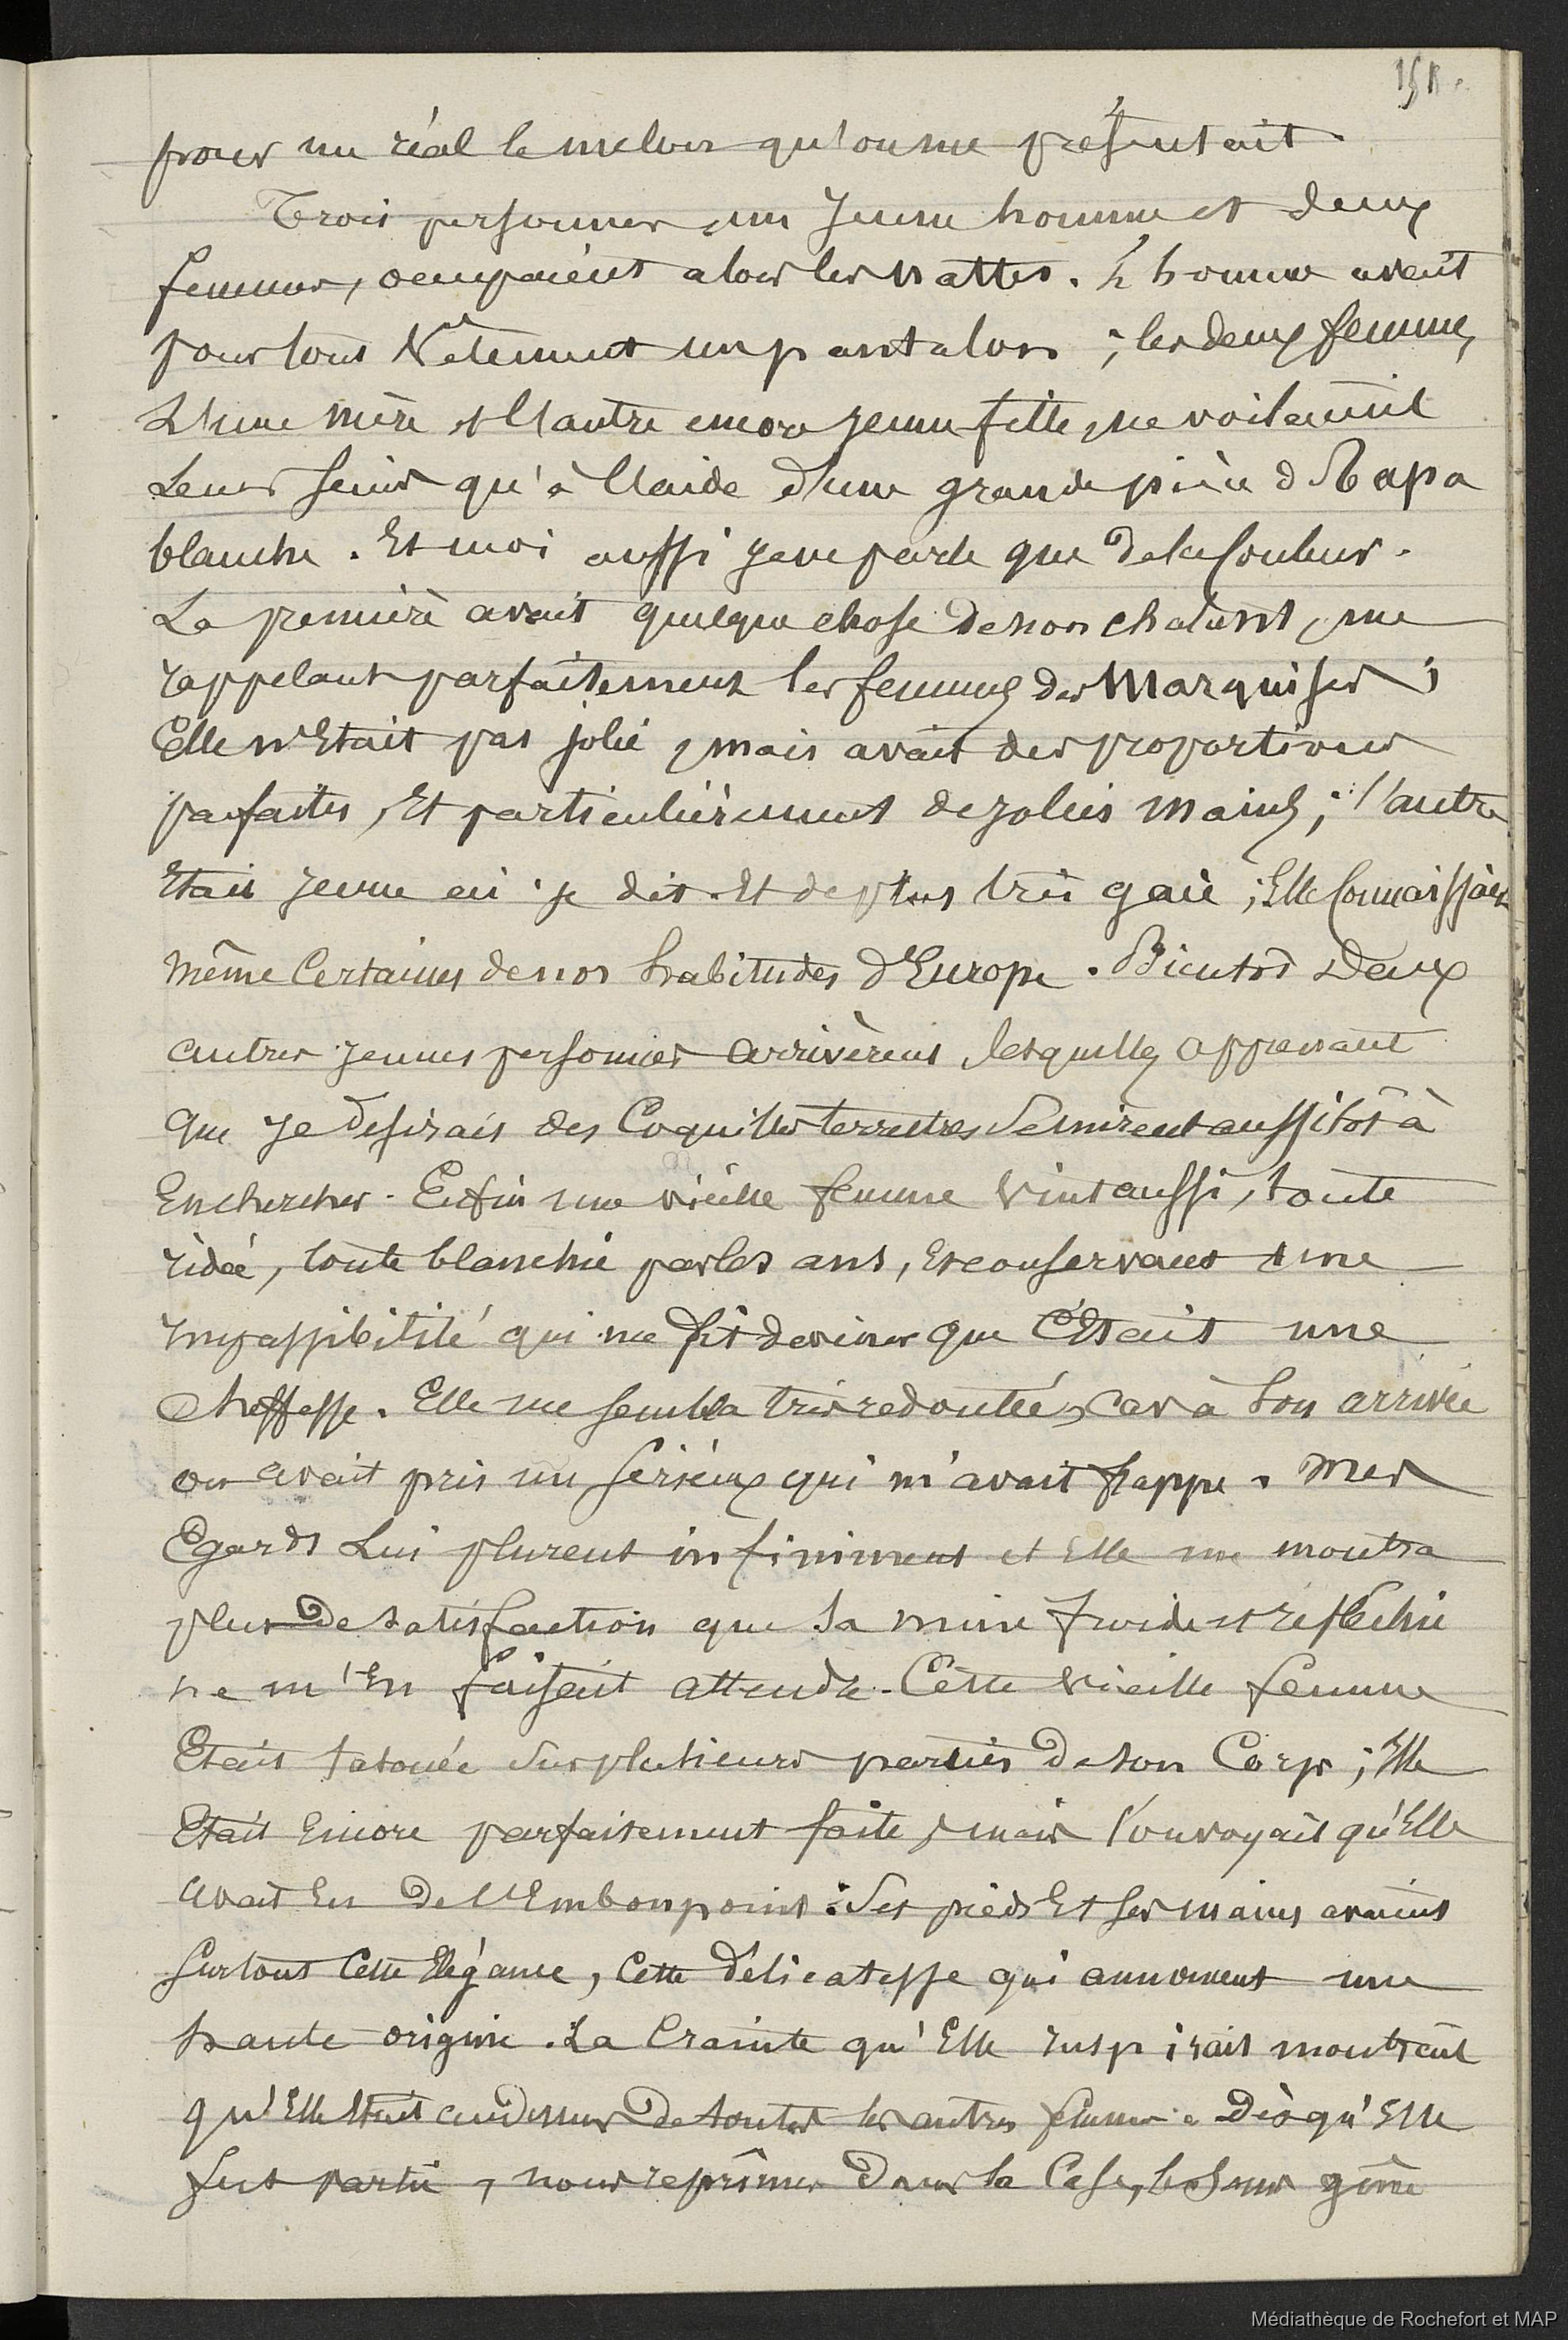 151.
pour un réal le melon qu'on me présentait.
Trois personnes, un jeune homme et deux
femmes, occupaient alors les nattes. L'homme avait
pour tout Vêtement un pantalon ; les deux femmes,
L'une mère et l'autre encore jeune fille, ne voilaient
Leurs seins qu'à l'aide d'une grande pièce d Tapa
blanche. Et moi aussi je ne parle que de la Couleur.
La première avait quelque chose de nonchalant, me
rappelant parfaitement les femmes des Marquises ;
Elle n'Etait pas jolie, mais avait des proportions
parfaites, Et particulièrement de jolies mains ; l'autre
Etait jeune ai-je dit. Et de plus très gaie ; Elle Connaissait
même Certaines de nos habitudes d'Europe. Bientôt Deux
autres jeunes personnes arrivèrent, lesquelles apprenant
Que je desirais des Coquilles terrestres Se mirent aussitôt à
En chercher. Enfin une vieille femme Vint aussi, toute
ridée, toute blanchie par les ans, Et conservant une
impassibilité qui me fit deviner que C'Etait une
Cheffesse. Elle me sembla très redoutée, Car à Son arrivée
on avait pris un sérieux qui m'avait frappé. Mes
Egards Lui plurent infiniment et Elle me montra
plus De satisfaction que sa mine froide et réfléchie
ne m'En faisait attendre. Cette Vieille femme
Etait tatouée Sur plusieurs parties De son Corps ; Elle
Etait Encore parfaitement faite, mais l'on voyait qu'Elle
avait Eu De l'Embonpoint : Ses pieds Et ses mains avaient
Surtout Cette Elégance, Cette Délicatesse qui annoncent une
haute origine. La Crainte qu'Elle inspirait montrait
qu'Elle Etait au dessus De toutes les autres femmes. Dès qu'Elle
fut partie, nous reprîmes Dans la Case, le Sans gêne
Médiathèque de Rochefort et MAP